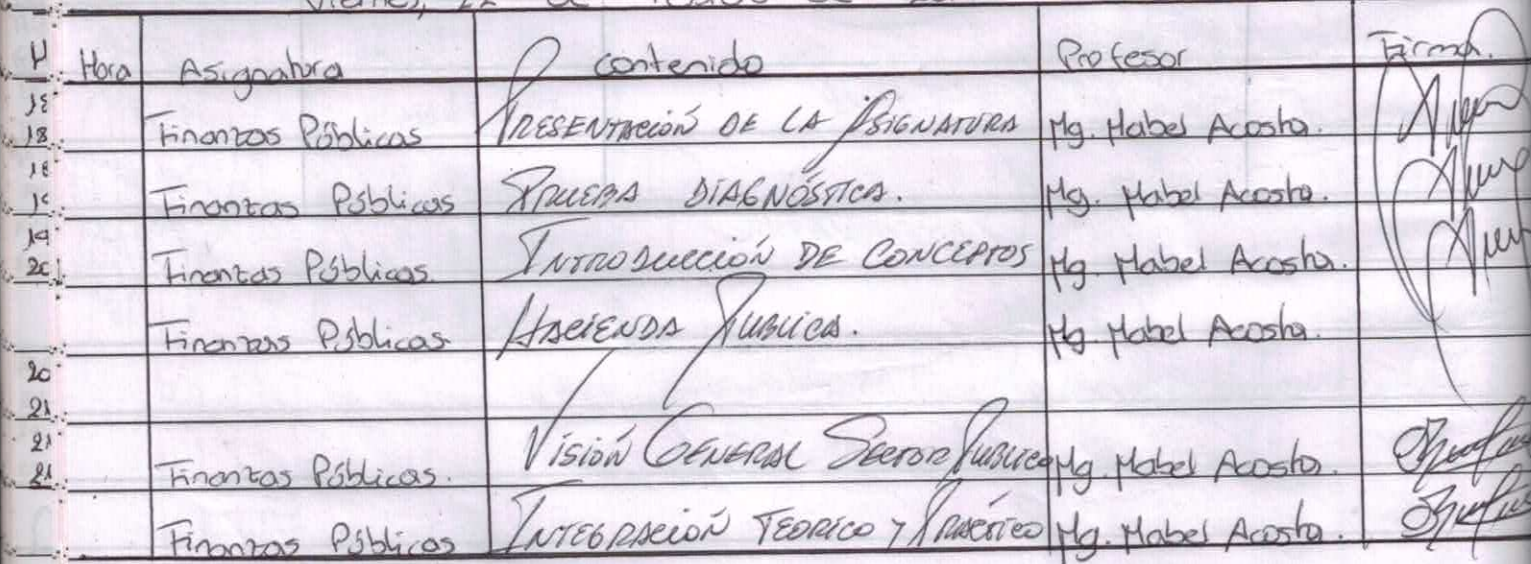 Hora Asignatura Contenido Profesor Firma.
Finanzas Públicas PRESENTACIÓN DE LA ASIGNATURA Mg. Mabel Acosta.
18
Finanzas Públicas PRUEBA DIAGNÓSTICA. Mg. Mabel Acosta.
19
Finanzas Públicas. INTRODUCCIÓN DE CONCEPTOS Mg. Mabel Acosta.
Finanzas Públicas. HACIENDA PUBLICA. Mg. Mabel Acosta.
20
21
Finanzas Públicas. VISIÓN GENERAL SECTOR PUBLICO Mg. Mabel Acosta.
Finanzas Públicas INTEGRACIÓN TEORICO Y PRÁCTICO Mg. Mabel Acosta.